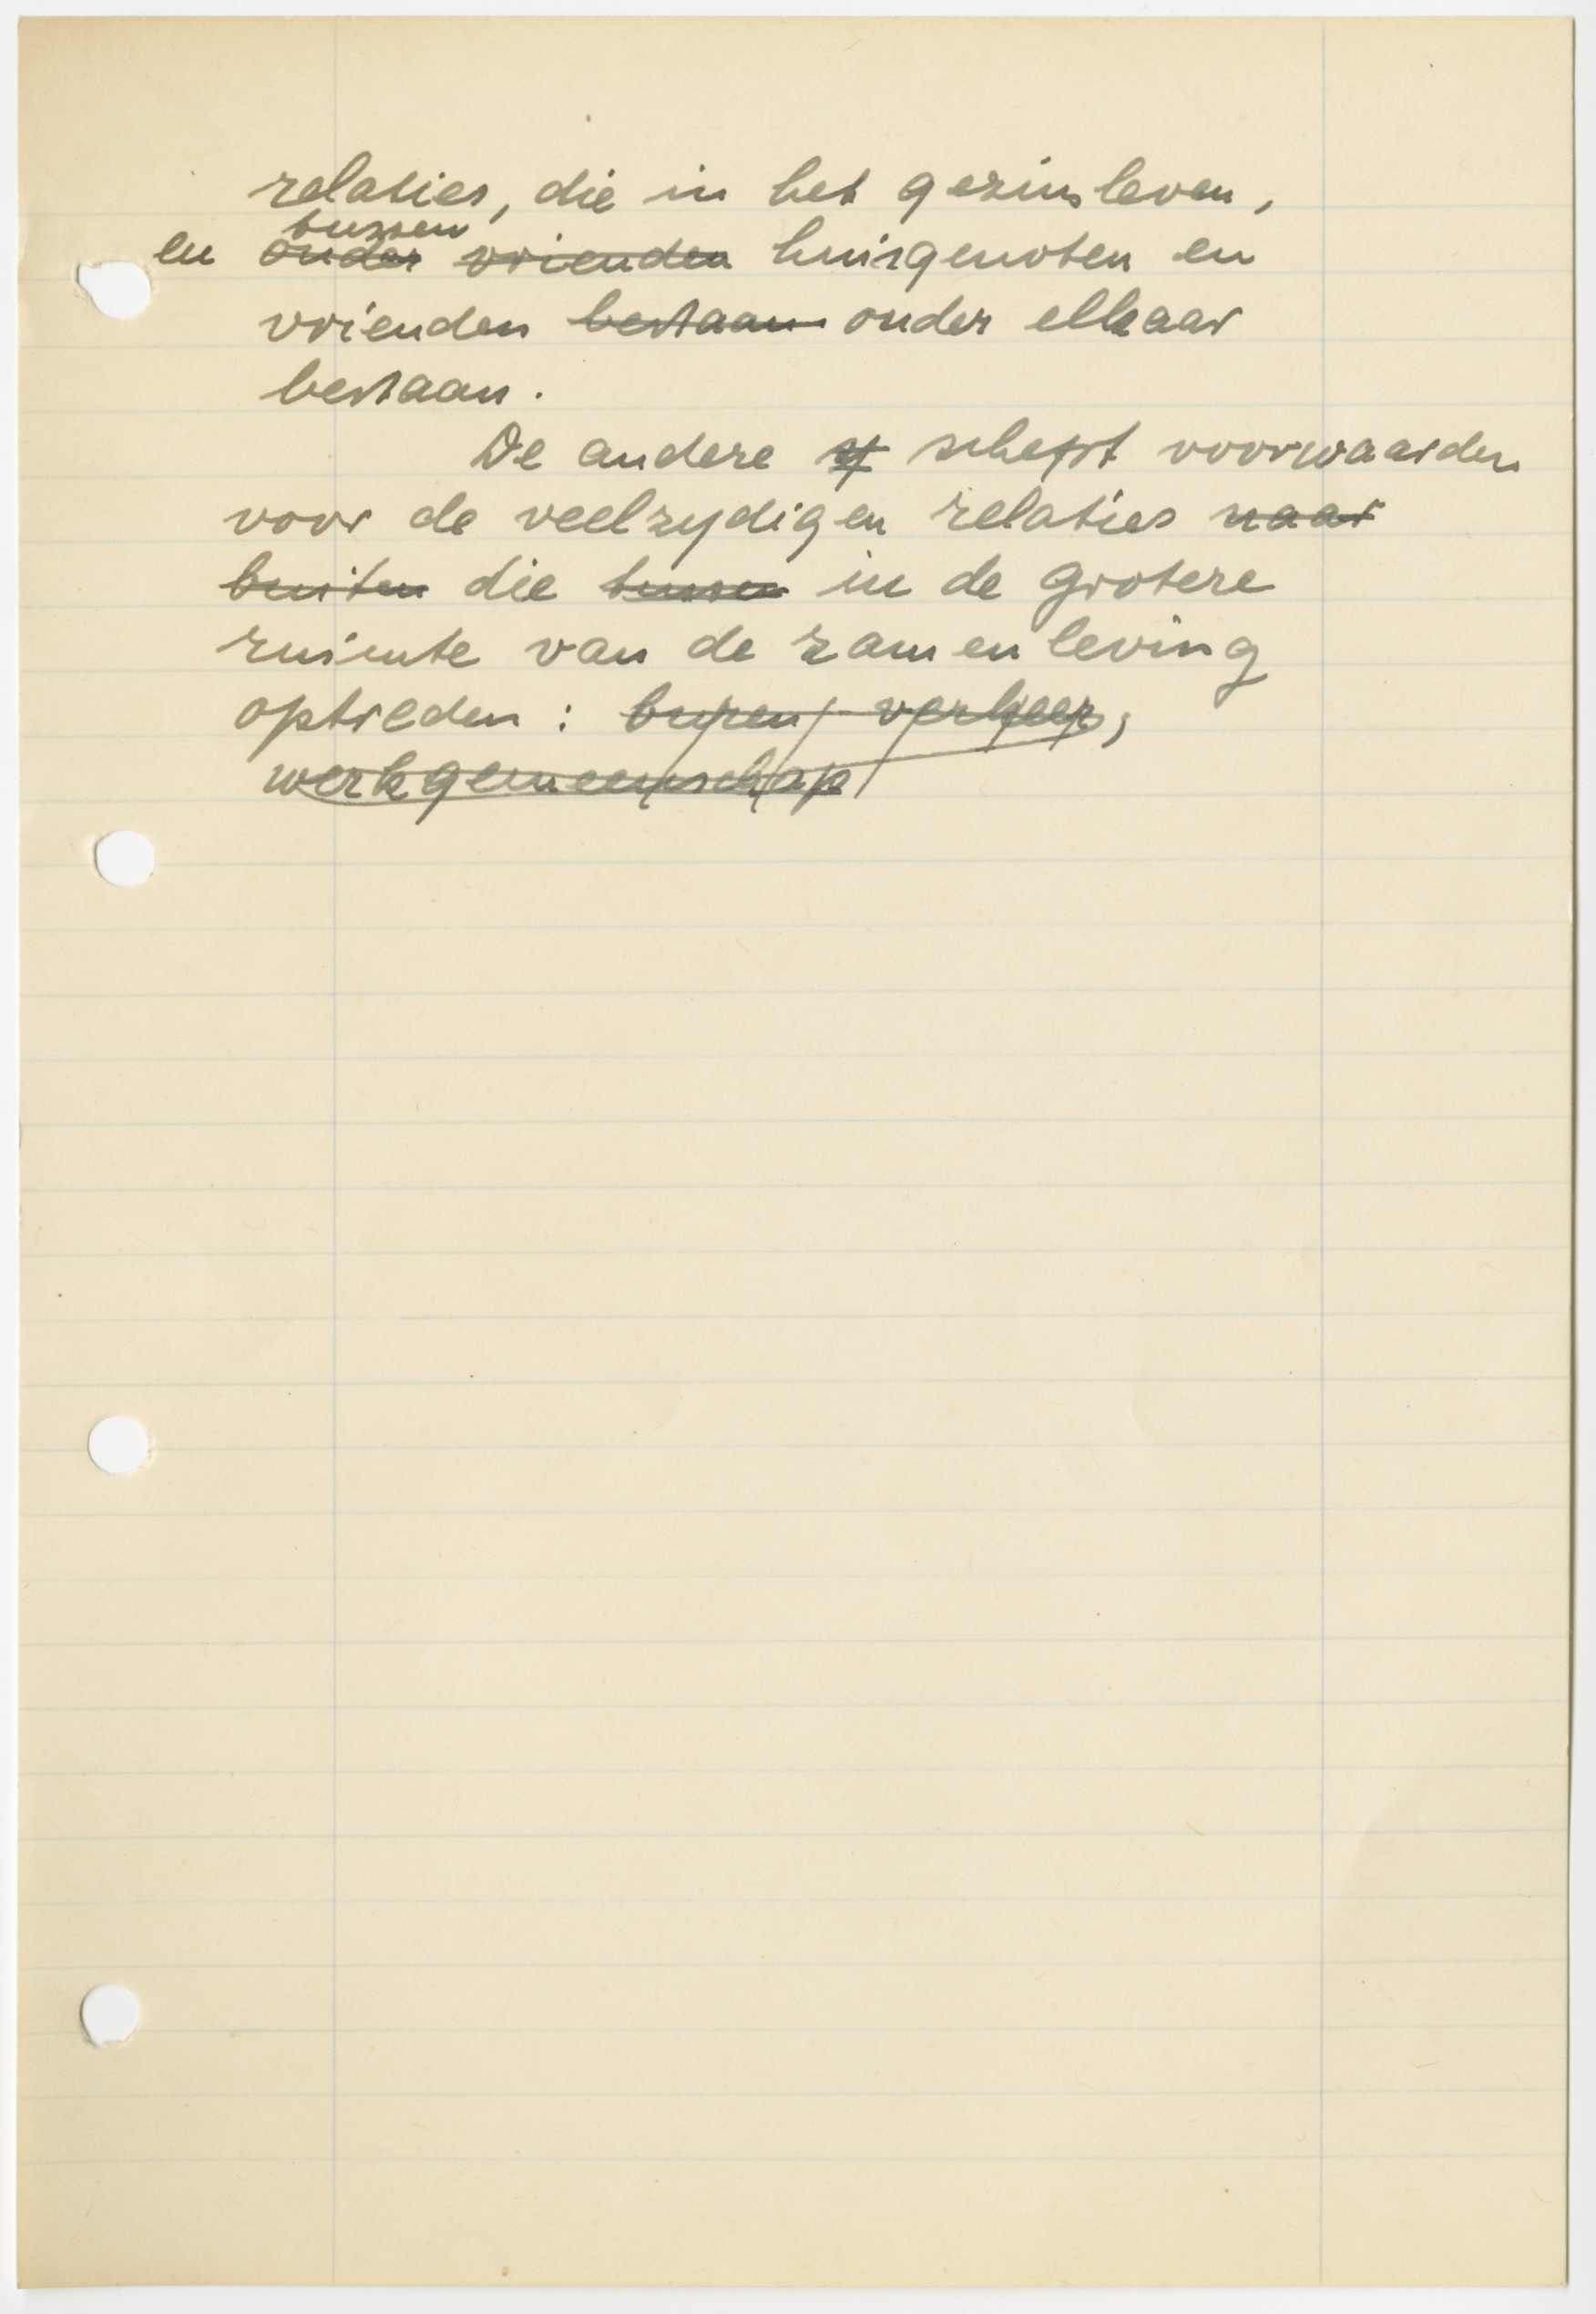 relaties, die in het gezinsleven,
tussen
en onder vrienden huisgenoten en
vrienden bestaan onder elkaar
bestaan.
De andere schept voorwaarden
voor de veelzydigen relaties naar
buiten die tussen in de grotere
ruimte van de zamenleving
optreden : buren, verkeer,
werkgemeenschap